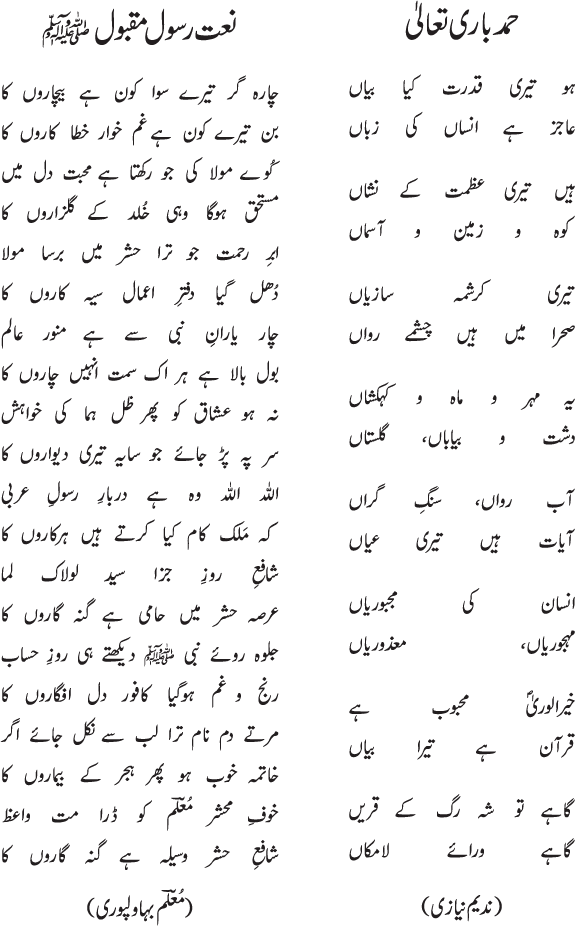 حمد باری تعالیٰ
ہو تیری قدرت کیا بیاں
عاجز ہے انساں کی زباں
ہیں تیری عظمت کے نشاں
کوہ و زمین و آسماں
تیری کرشمہ سازیاں
صحرا میں ہیں چشمے رواں
یہ مہر و ماہ و کہکشاں
دشت و بیاباں، گلستاں
آب رواں، سنگِ گراں
آیات ہیں تیری عیاں
انسان کی مجبوریاں
مہجوریاں، معذوریاں
خیرالوریٰؐ محبوب ہے
قرآن ہے تیرا بیاں
گاہے تو شہ رگ کے قریں
گاہے ورائے لامکاں
(ندیم نیازی)
نعت رسول مقبول ﷺ
چارہ گر تیرے سوا کون ہے بیچاروں کا
بن تیرے کون ہے غم خوار خطا کاروں کا
کُوے مولا کی جو رکھتا ہے محبت دل میں
مستحق ہوگا وہی خُلد کے گلزاروں کا
ابرِ رحمت جو ترا حشر میں برسا مولا
دُھل گیا دفترِ اعمال سیہ کاروں کا
چار یارانِ نبی سے ہے منور عالم
بول بالا ہے ہر اک سمت انہیں چاروں کا
نہ ہو عشاق کو پھر ظل ہما کی خواہش
سر پہ پڑ جائے جو سایہ تیری دیواروں کا
اللہ اللہ وہ ہے دربارِ رسولِ عربی
کہ مَلک کام کیا کرتے ہیں ہرکاروں کا
شافعِ روزِ جزا سید لولاک لما
عرصہ حشر میں حامی ہے گنہ گاروں کا
جلوہ روئے نبی ﷺ دیکھتے ہی روزِ حساب
رنج و غم ہوگیا کافور دل افگاروں کا
مرتے دم نام ترا لب سے نکل جائے اگر
خاتمہ خوب ہو پھر ہجر کے بیماروں کا
خوفِ محشر مُعلّم کو ڈرا مت واعظ
شافعِ حشر وسیلہ ہے گنہ گاروں کا
(مُعلّم بہاولپوری)